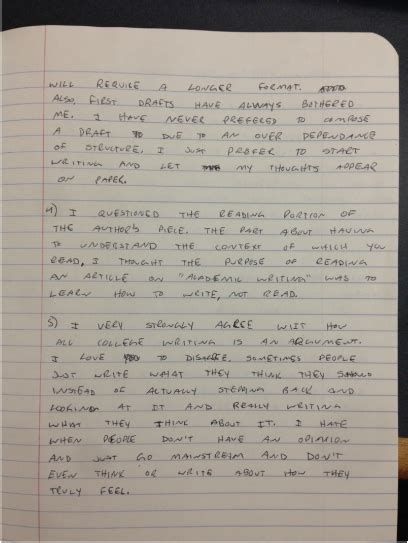 WILL REQUIRE A LONGER FORMAT.
ALSO, FIRST DRAFTS HAVE ALWAYS BOTHERED
ME. I HAVE NEVER PREFERED TO COMPOSE
A DRAFT DUE TO AN OVER DEPENDANCE
OF STRUCTURE. I JUST PREFER TO START
WRITING AND LET MY THOUGHTS APPEAR
ON PAPER.
4) I QUESTIONED THE READING PORTION OF
THE AUTHOR'S PIECE. THE PART ABOUT HAVING
TO UNDERSTAND THE CONTEXT OF WHICH YOU
READ, I THOUGHT THE PURPOSE OF READING
AN ARTICLE ON "ACADEMIC WRITING" WAS TO
LEARN HOW TO WRITE, NOT READ.
5) I VERY STRONGLY AGREE WIST HOW
ALL COLLEGE WRITING IS AN ARGUMENT.
I LOVE TO DISAGREE. SOMETIMES PEOPLE
JUST WRITE WHAT THEY THINK THEY SHOULD
INSTEAD OF ACTUALLY STEPPING BACK AND
LOOKINDA AT IT AND REALLY WRITING
WHAT THEY THINK ABOUT IT. I HATE
WHEN PEOPLE DON'T HAVE AN OPINION
AND JUST GO MAINSTREAM AND DON'T
EVEN THINK OR WRITE ABOUT HOW THEY
TRULY FEEL.